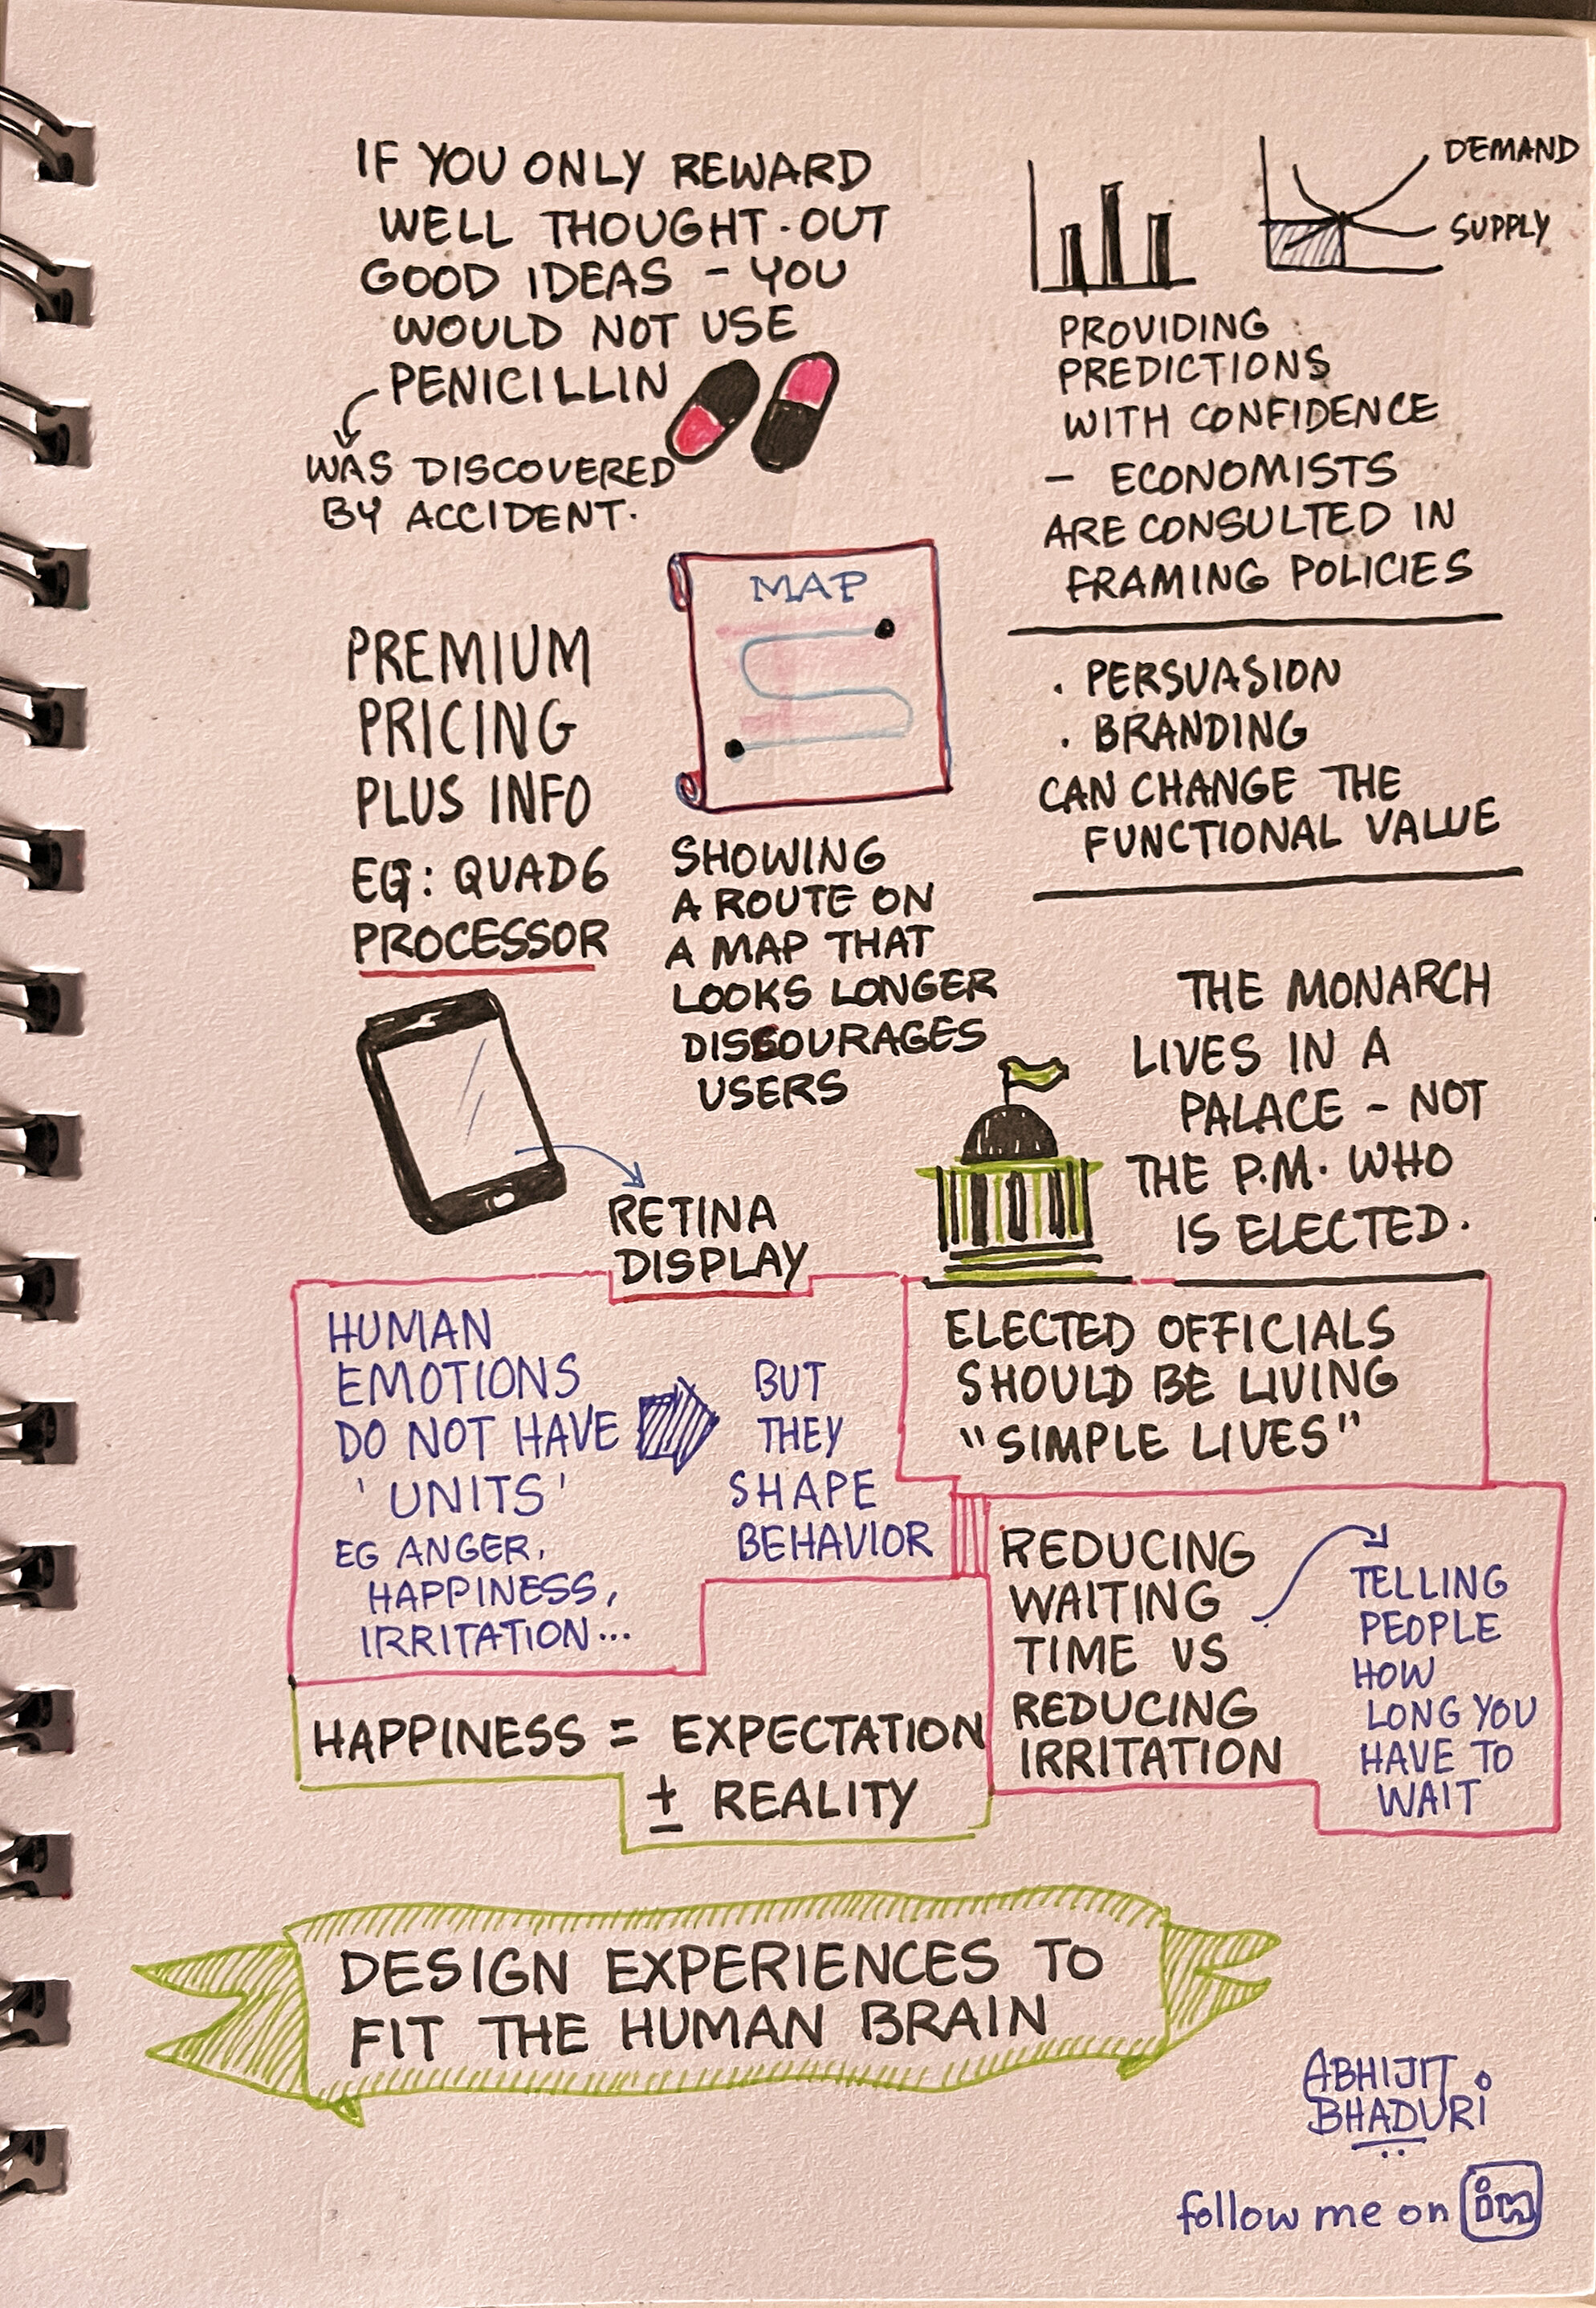 IF YOU ONLY REWARD
WELL THOUGHT-OUT
GOOD IDEAS - YOU
WOULD NOT USE
PENICILLIN
WAS DISCOVERED
BY ACCIDENT.
DEMAND
SUPPLY
PROVIDING
PREDICTIONS
WITH CONFIDENCE
- ECONOMISTS
ARE CONSULTED IN
FRAMING POLICIES
PREMIUM
PRICING
PLUS INFO
EG: QUAD6
PROCESSOR
MAP
SHOWING
A ROUTE ON
A MAP THAT
LOOKS LONGER
DISCOURAGES
USERS
. PERSUASION
. BRANDING
CAN CHANGE THE
FUNCTIONAL VALUE
RETINA
DISPLAY
THE MONARCH
LIVES IN A
PALACE - NOT
THE P.M. WHO
IS ELECTED.
HUMAN
EMOTIONS
DO NOT HAVE
'UNITS'
EG ANGER,
HAPPINESS,
IRRITATION...
BUT
THEY
SHAPE
BEHAVIOR
ELECTED OFFICIALS
SHOULD BE LIVING
"SIMPLE LIVES"
REDUCING
WAITING
TIME VS
REDUCING
IRRITATION
TELLING
PEOPLE
HOW
LONG YOU
HAVE TO
WAIT
HAPPINESS = EXPECTATION
± REALITY
DESIGN EXPERIENCES TO
FIT THE HUMAN BRAIN
ABHIJIT
BHADURI
follow me on in